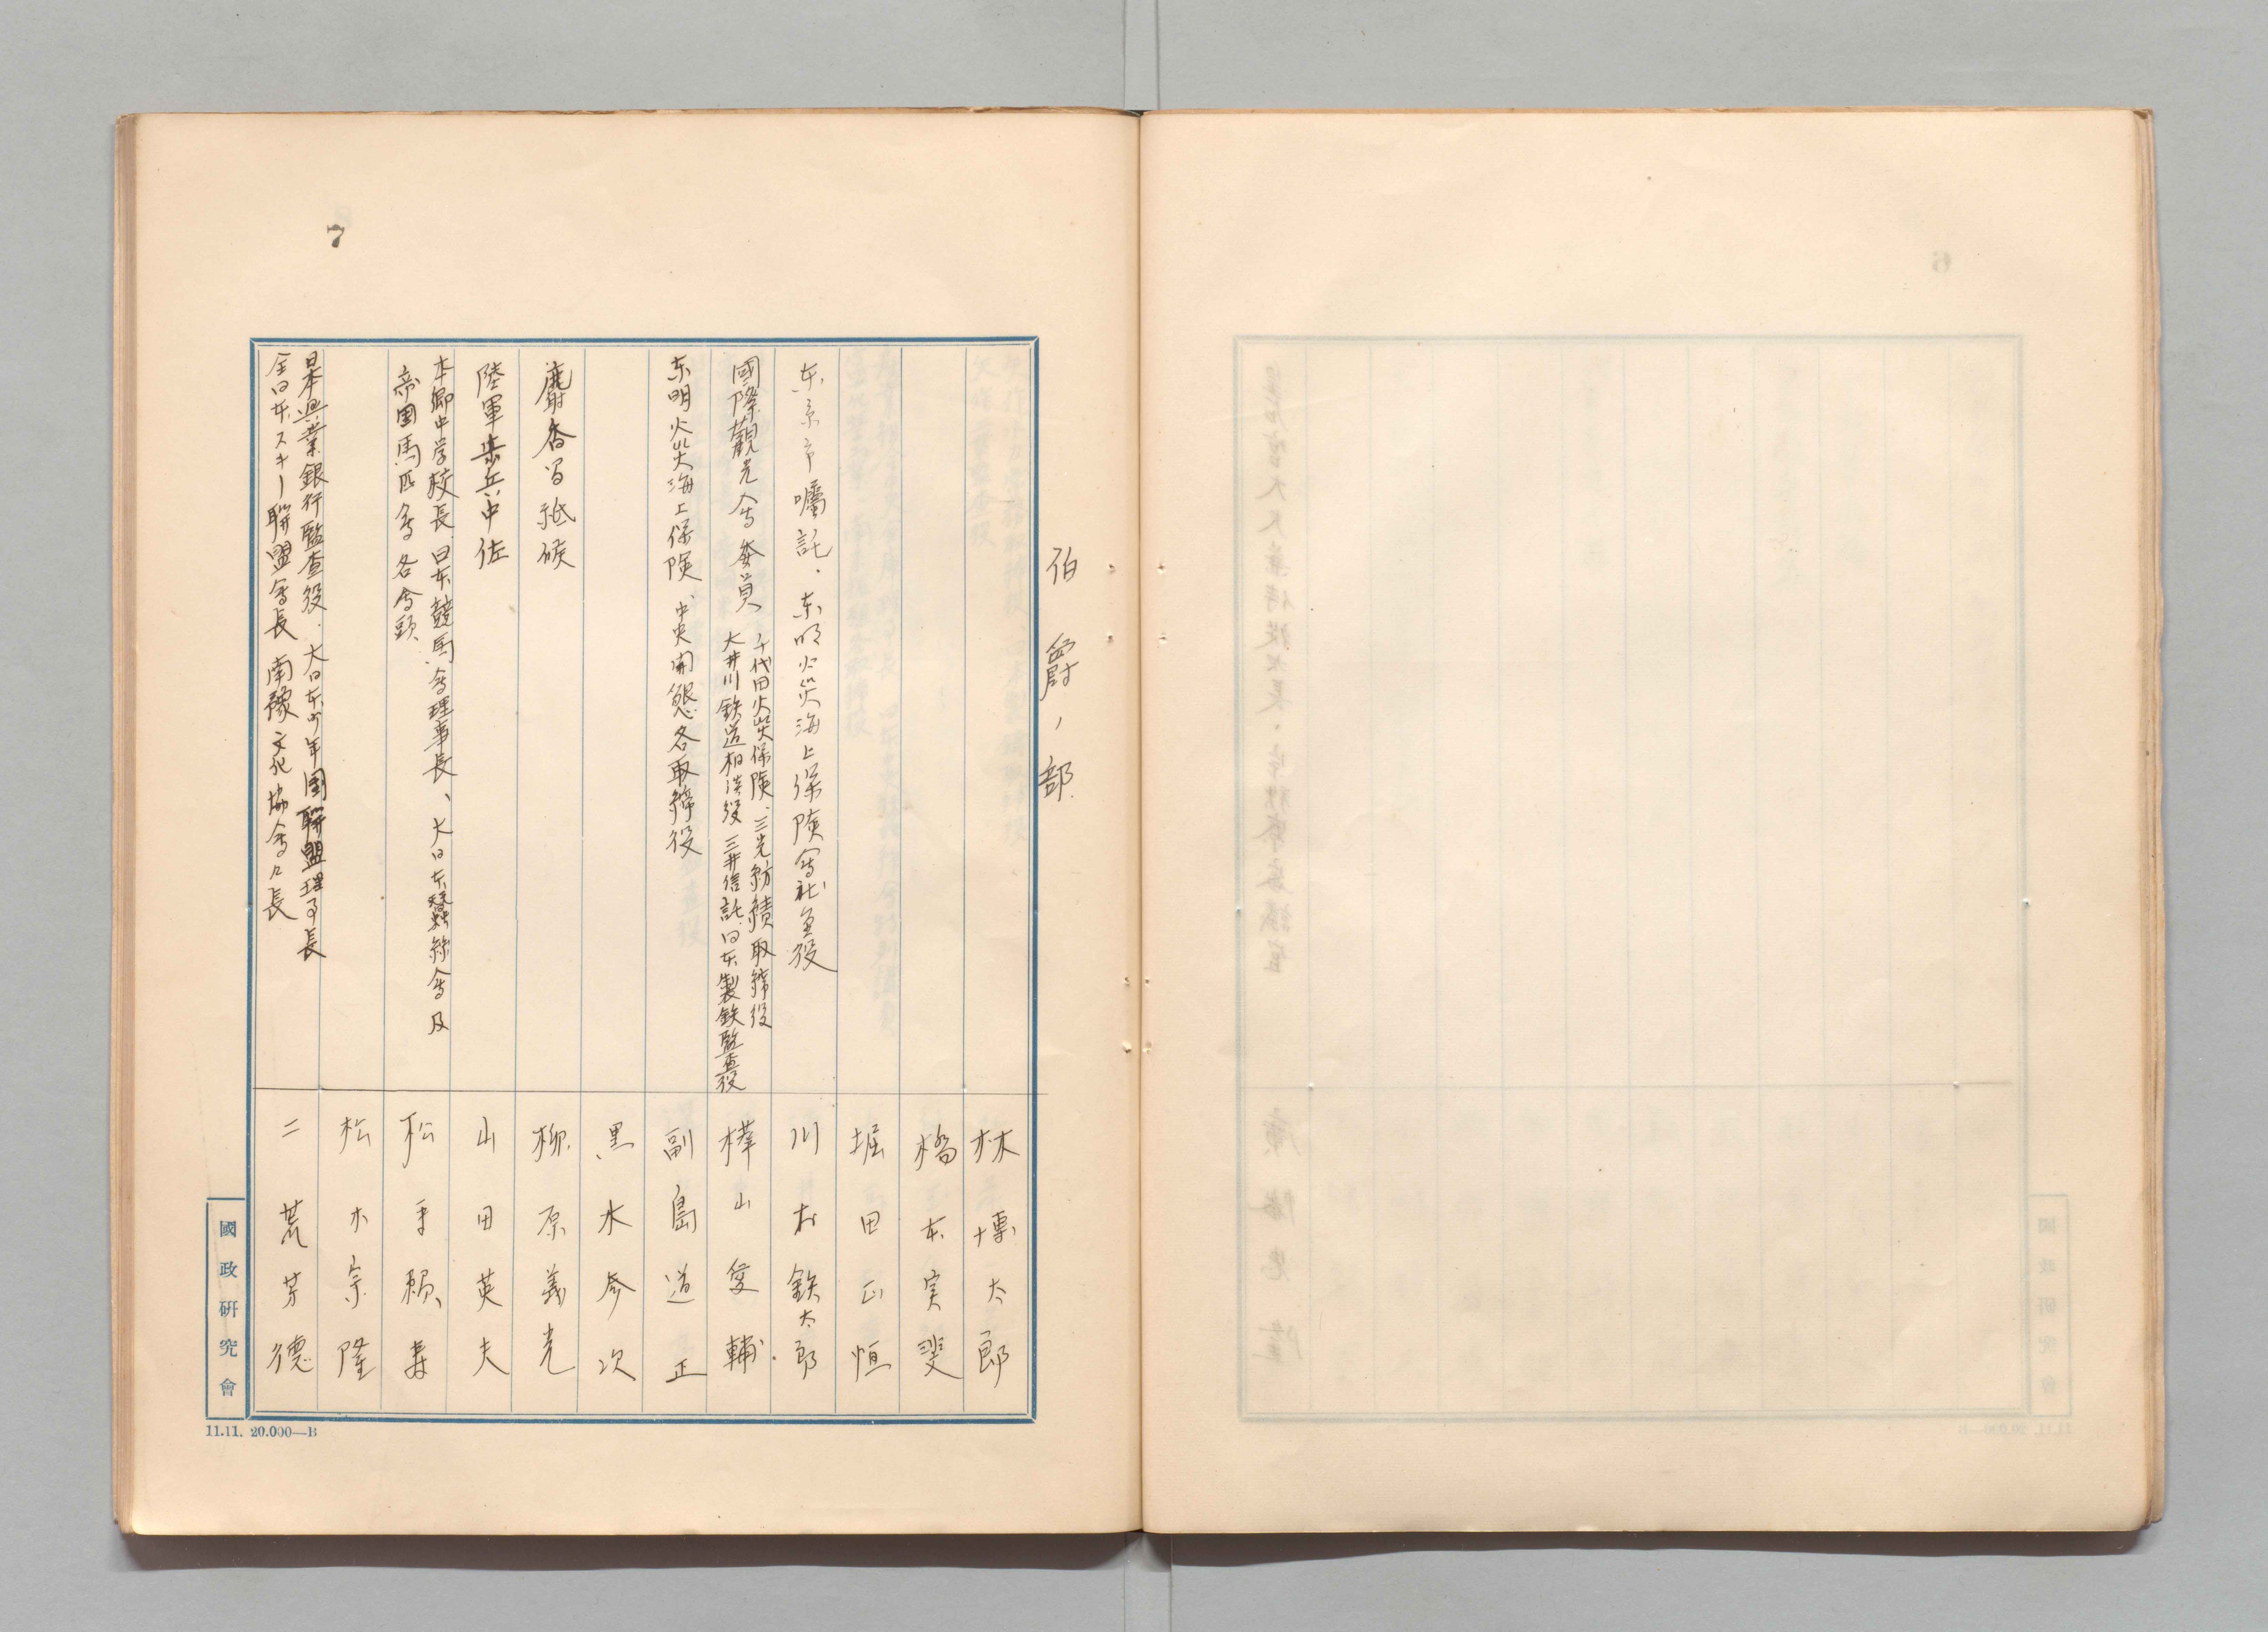 伯爵ノ部
林博太郎
橋本実斐
堀田正恒
東京市囑託、東明火災海上保険会社重役
川村鉄太郎
國際観光会委員
千代田火災保険、三光紡績取締役
大井川鉄道相談役 三井信託、日本製鉄監査役
樺山愛輔
東明火災海上保険、中央開懇各取締役
副島道正
黒木參次
麝香間祗候
柳原義光
陸軍歩兵中佐
山田英夫
本郷中学校長、日本競馬会理事長、大日本蠶絲会及
帝国馬匹会各会頭
松平頼壽
松木宗隆
日本興業銀行監査役、大日本少年団聯盟理事長
全日本スキー聯盟会長 南豫文化協会々長
二荒芳德
7
國政研究會
11.11. 20.000—B